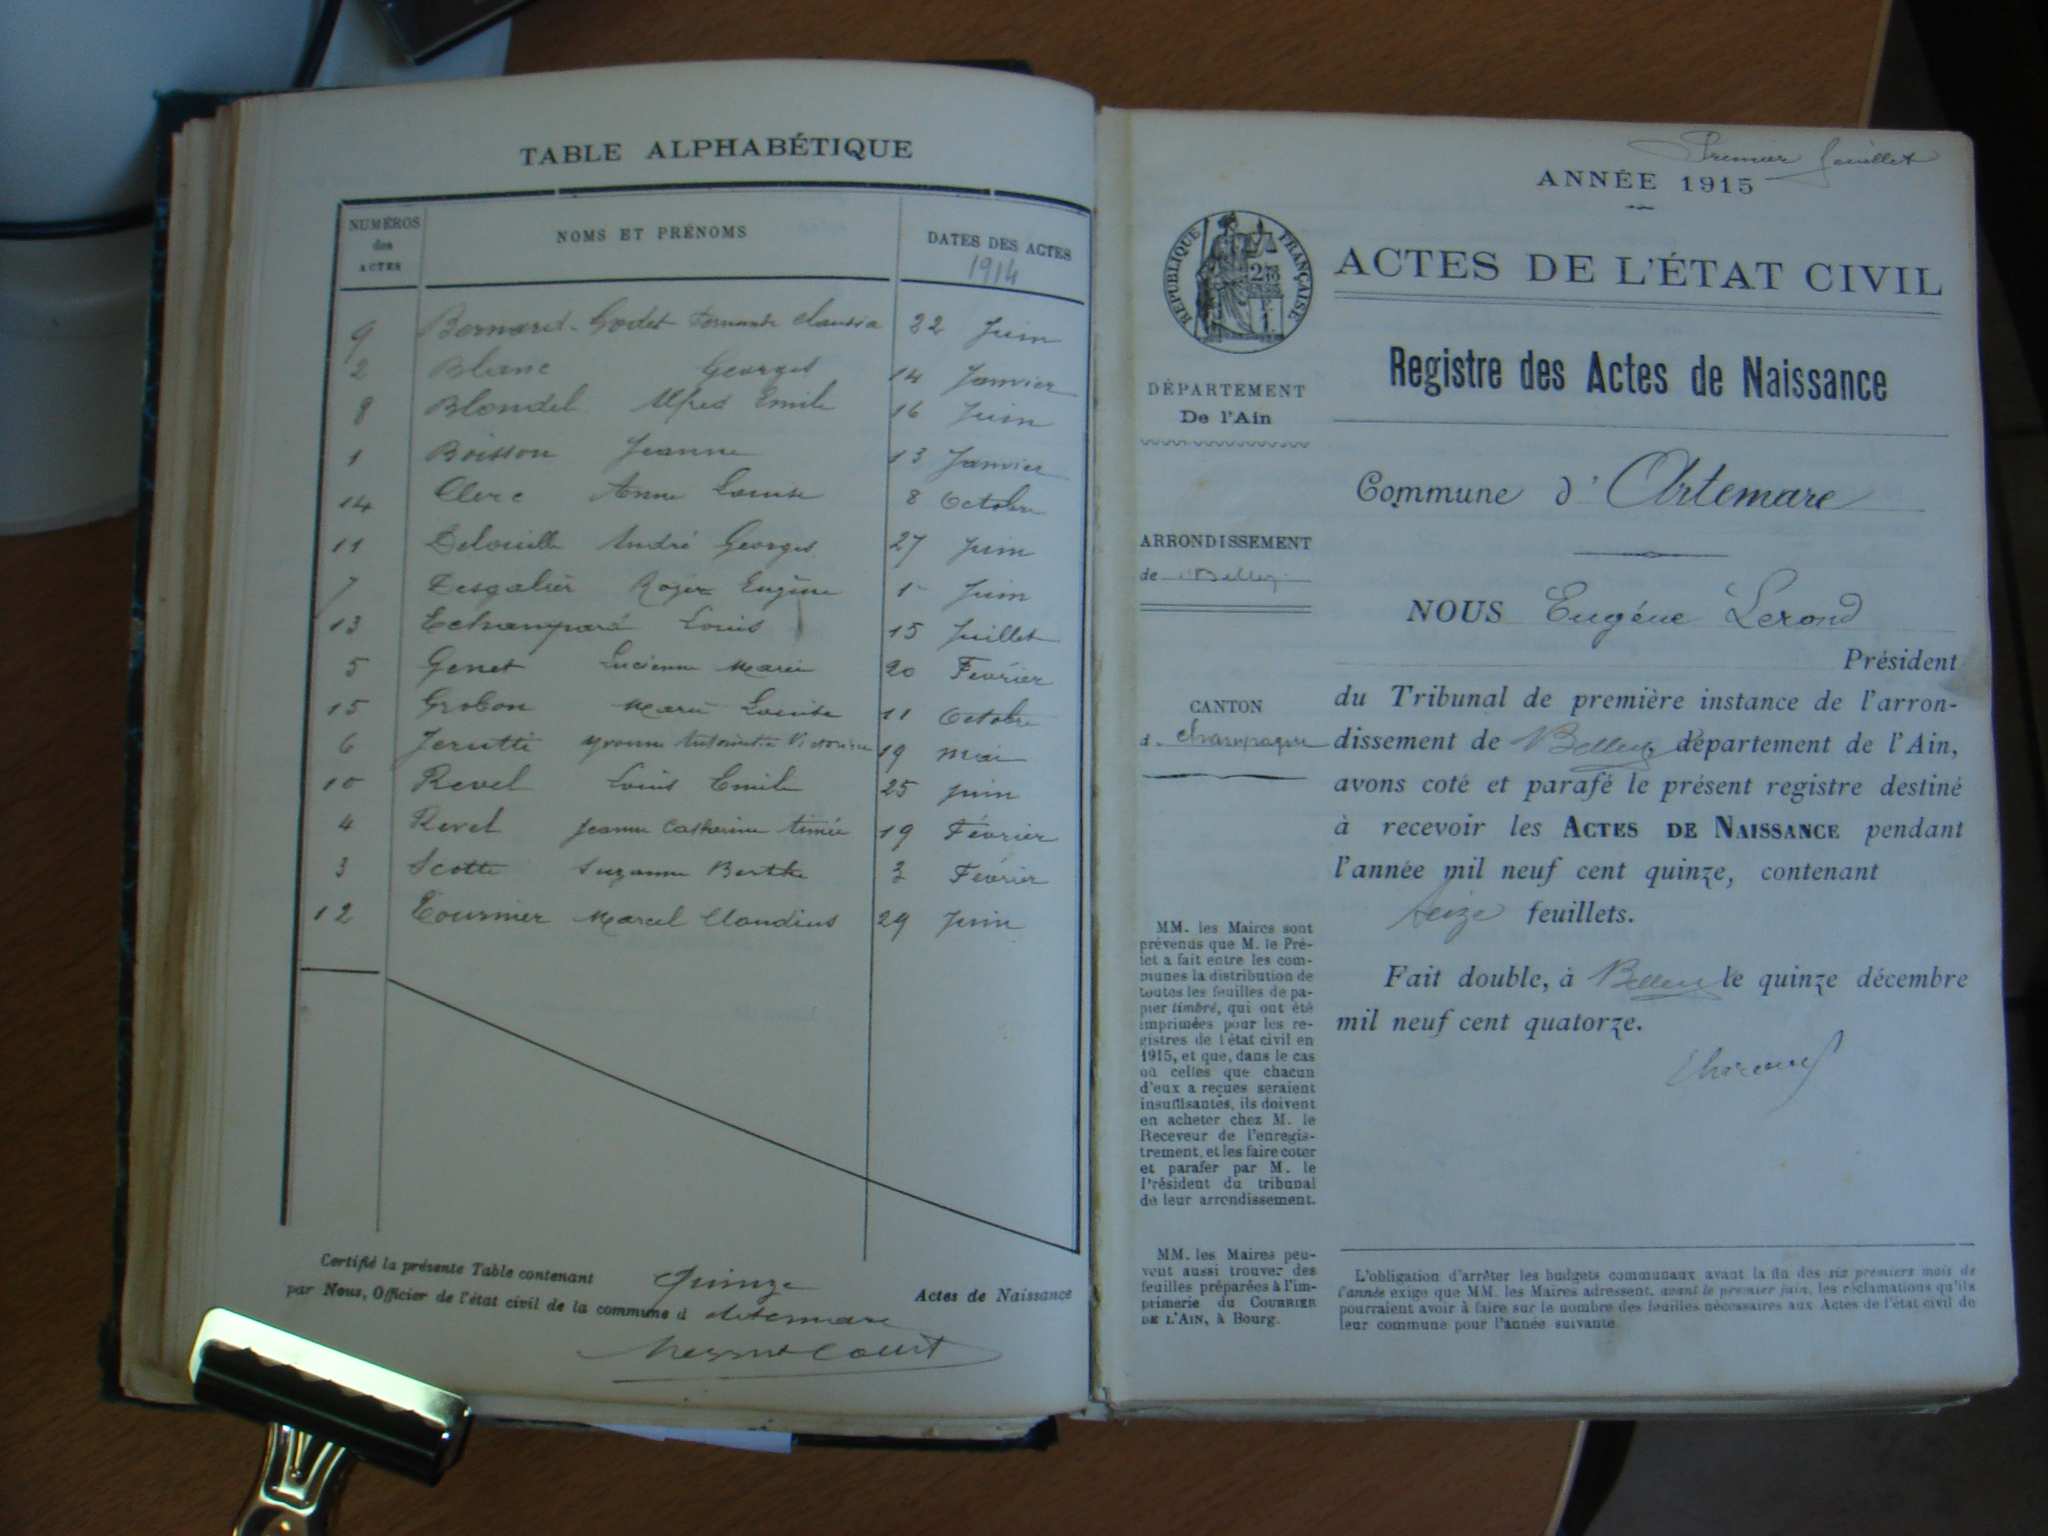 TABLE ALPHABÉTIQUE
NUMÉROS des ACTES NOMS ET PRÉNOMS DATES DES ACTES
1914
9 Bernard-Godet Fernande Claudia 22 Juin
2 Blanc Georges 14 Janvier
8 Blondel Alfred Emile 16 Juin
1 Boisson Jeanne 13 Janvier
14 Clerc Anne Louise 8 Octobre
11 Delouille André Georges 27 Juin
7 Desgalier Roger Eugène 1 Juin
13 Echampard Louis 15 Juillet
5 Genet Lucienne Marie 20 Février
15 Grobon Marie Louise 11 Octobre
6 Jerutti Yvonne Antoinette Victorine 19 Mai
10 Revel Louis Emile 25 Juin
4 Revel Jeanne Catherine 19 Février
3 Scotte Suzanne Berthe 3 Février
12 Tournier Marcel Claudius 29 Juin
Certifié la présente Table contenant Quinze Actes de Naissance
par Nous, Officier de l'état civil de la commune d Artemare
Premier feuillet
ANNÉE 1915
RÉPUBLIQUE FRANÇAISE
ACTES DE L'ÉTAT CIVIL
Registre des Actes de Naissance
DÉPARTEMENT
De l'Ain
Commune d'Artemare
ARRONDISSEMENT
de Belley
NOUS Eugéne Lerond
Président
CANTON
d. Champagne
du Tribunal de première instance de l'arron-
dissement de Belley, département de l'Ain,
avons coté et parafé le présent registre destiné
à recevoir les ACTES DE NAISSANCE pendant
l'année mil neuf cent quinze, contenant
seize feuillets.
Fait double, à Belley le quinze décembre
mil neuf cent quatorze.
MM. les Maires sont
prévenus que M. le Pré-
fet a fait entre les com-
munes la distribution de
toutes les feuilles de pa-
pier timbré, qui ont été
imprimées pour les re-
gistres de l'état civil en
1915, et que, dans le cas
où celles que chacun
d'eux a reçues seraient
insuffisantes, ils doivent
en acheter chez M. le
Receveur de l'enregis-
trement, et les faire coter
et parafer par M. le
Président du tribunal
de leur arrondissement.
MM. les Maires peu-
vent aussi trouver des
feuilles préparées à l'im-
primerie du COURRIER
DE L'AIN, à Bourg.
L'obligation d'arrêter les budgets communaux avant la fin des six premiers mois de
l'année exige que MM. les Maires adressent, avant le premier juin, les réclamations qu'ils
pourraient avoir à faire sur le nombre des feuilles nécessaires aux Actes de l'état civil de
leur commune pour l'année suivante.